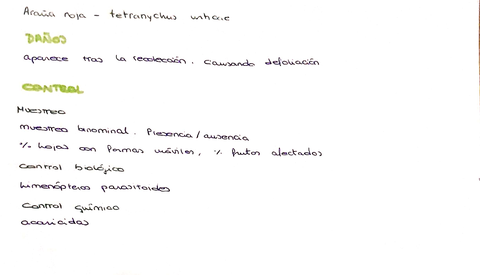 Araña roja - tetranychus urticae
DAÑOS
aparece tras la recolección. causando defoliación
CONTROL
Muestreo
muestreo binominal. Presencia/ausencia
% hojas con formas móviles, % frutos afectados
control biológico
himenópteros parasitoides
Control químico
acaricidas